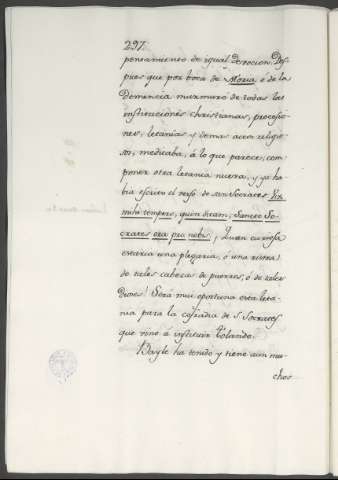 297.
pensamiento de igual devocion. Des-
pues que por boca de Moria ó de la
Demencia murmuró de todas las
instituciones christianas, procesio-
nes, letanias y demas actos religio-
sos, medicaba, á lo que parece, com-
poner otra letania nueva, y ya ha-
bia escrito el verso de San Socrates Vix
mihi tempero, quin dicam; Sancte So-
crates ora pro nobis ¡Quan curiosa
estaria una plegaria, ó una ristra
de tales cabezas de puerros, ó de tales
Dioses! Será muy oportuna esta leta-
nia para la cofradia de S. Socrates
que vino á instituir Tolando.
Bayle ha tenido y tiene aun mu-
chos